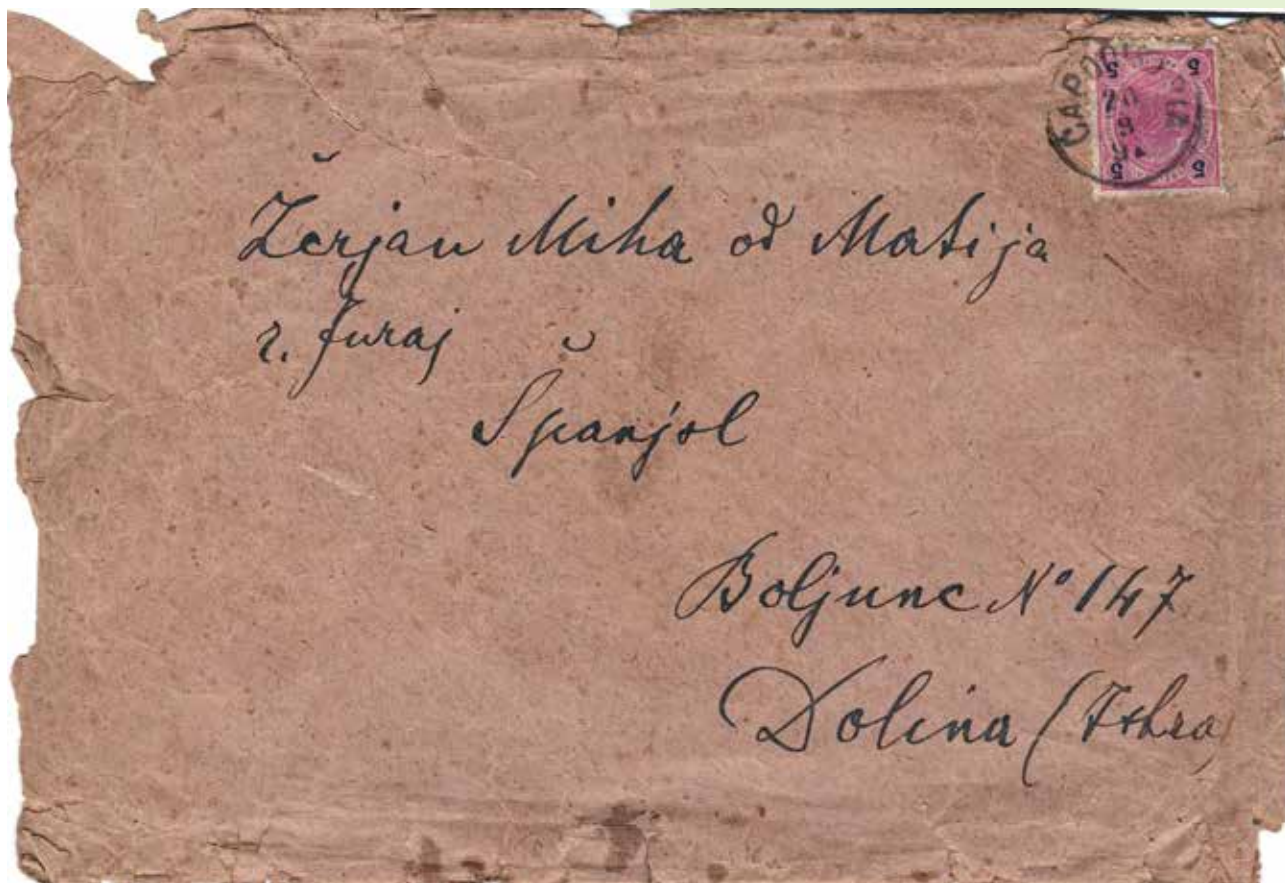 CAPODISTRIA
5 5
5 5
Žerjan Miha od Matija
r. Juraj
Španjol
Boljunc Nº 147
Dolina (Istra)